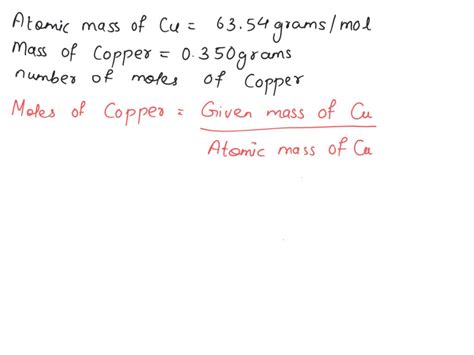 Atomic mass of Cu = 63.54 grams/mol
Mass of Copper = 0.350grams
number of moles of Copper
Moles of Copper = Given mass of Cu
Atomic mass of Cu